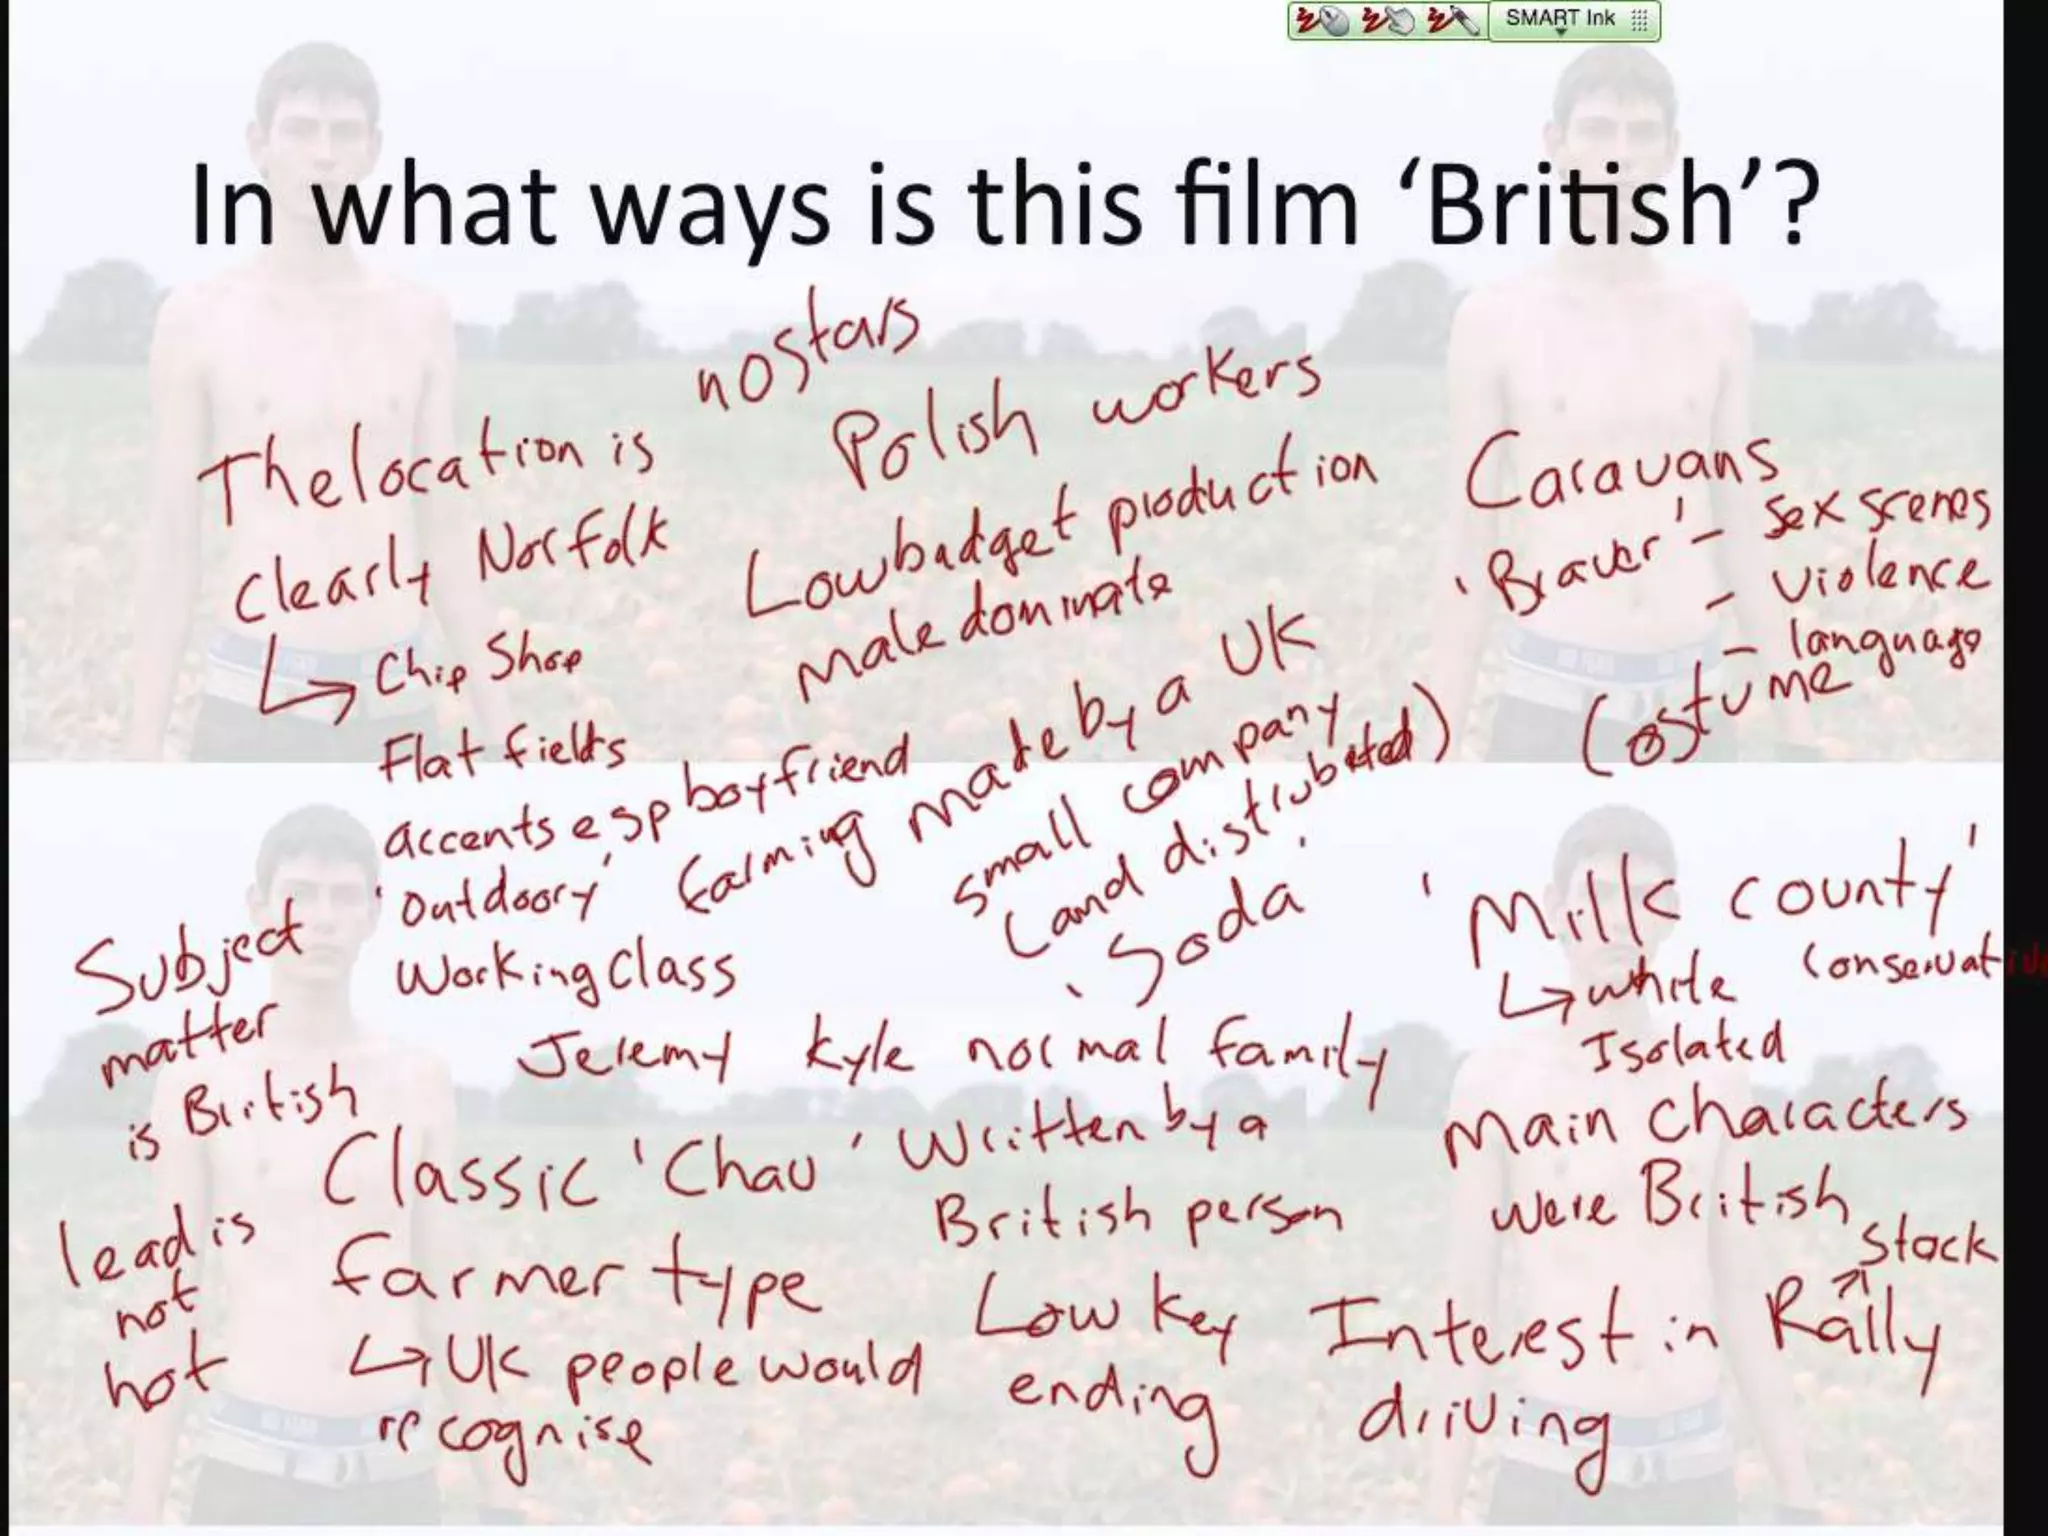 SMART Ink
In what ways is this film ‘British’?
no stars
Polish workers
The location is
clearly Norfolk
↳ Chip Shop
Flat fields
accents esp boyfriend
'Outdoory'
Working Class
Low budget production
male dominate
Caravans
'Braver' - sex scenes
- violence
- language
Costume
farming
made by a UK
small company
(and distributed)
'Soda'
'Milk county'
↳ white conservative
Isolated
Subject
matter
is British
Jeremy Kyle normal family
Classic 'Chav'
farmer type
↳ UK people would
recognise
Written by a
British person
Main characters
were British
lead is
not
hot
Low key
ending
Stock
Interest in Rally
driving